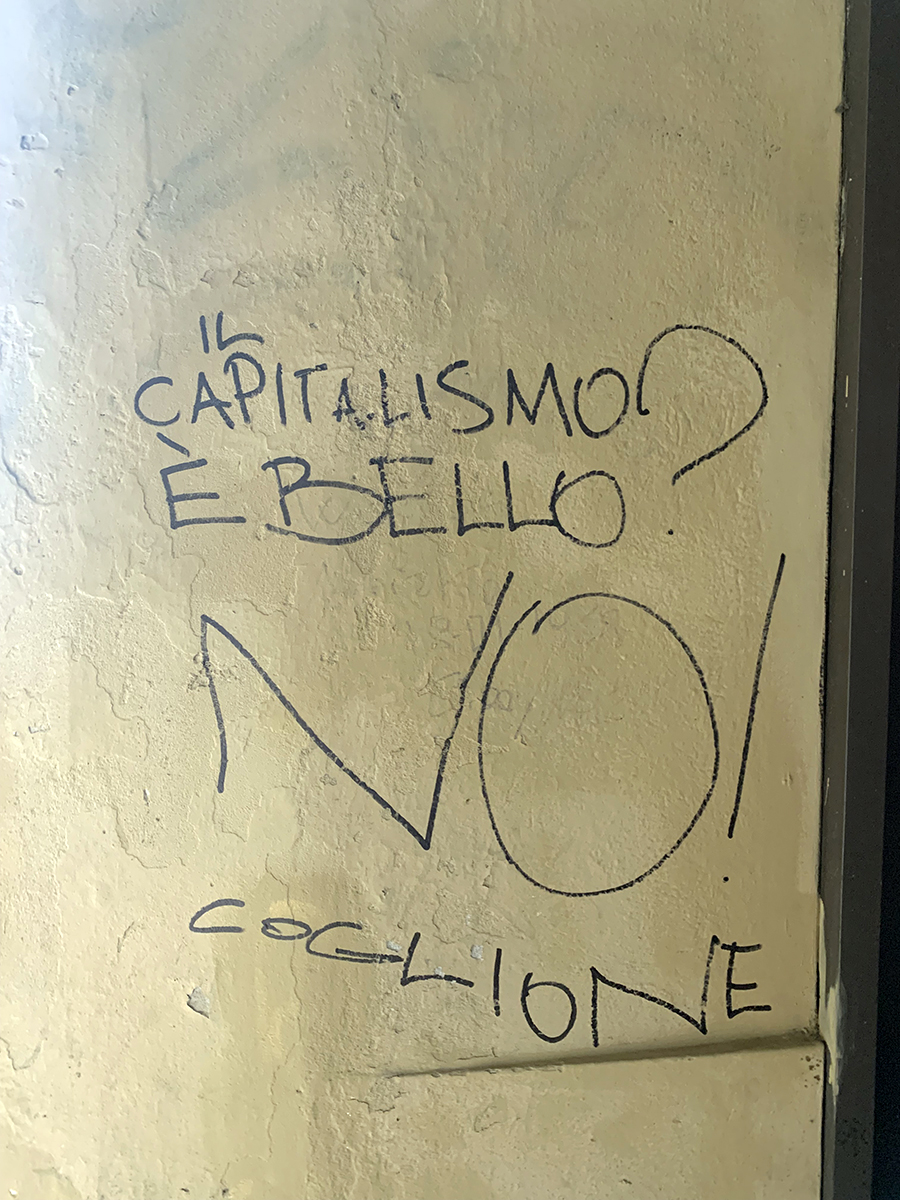 IL
CAPITALISMO?
È BELLO
NO!
COGLIONE